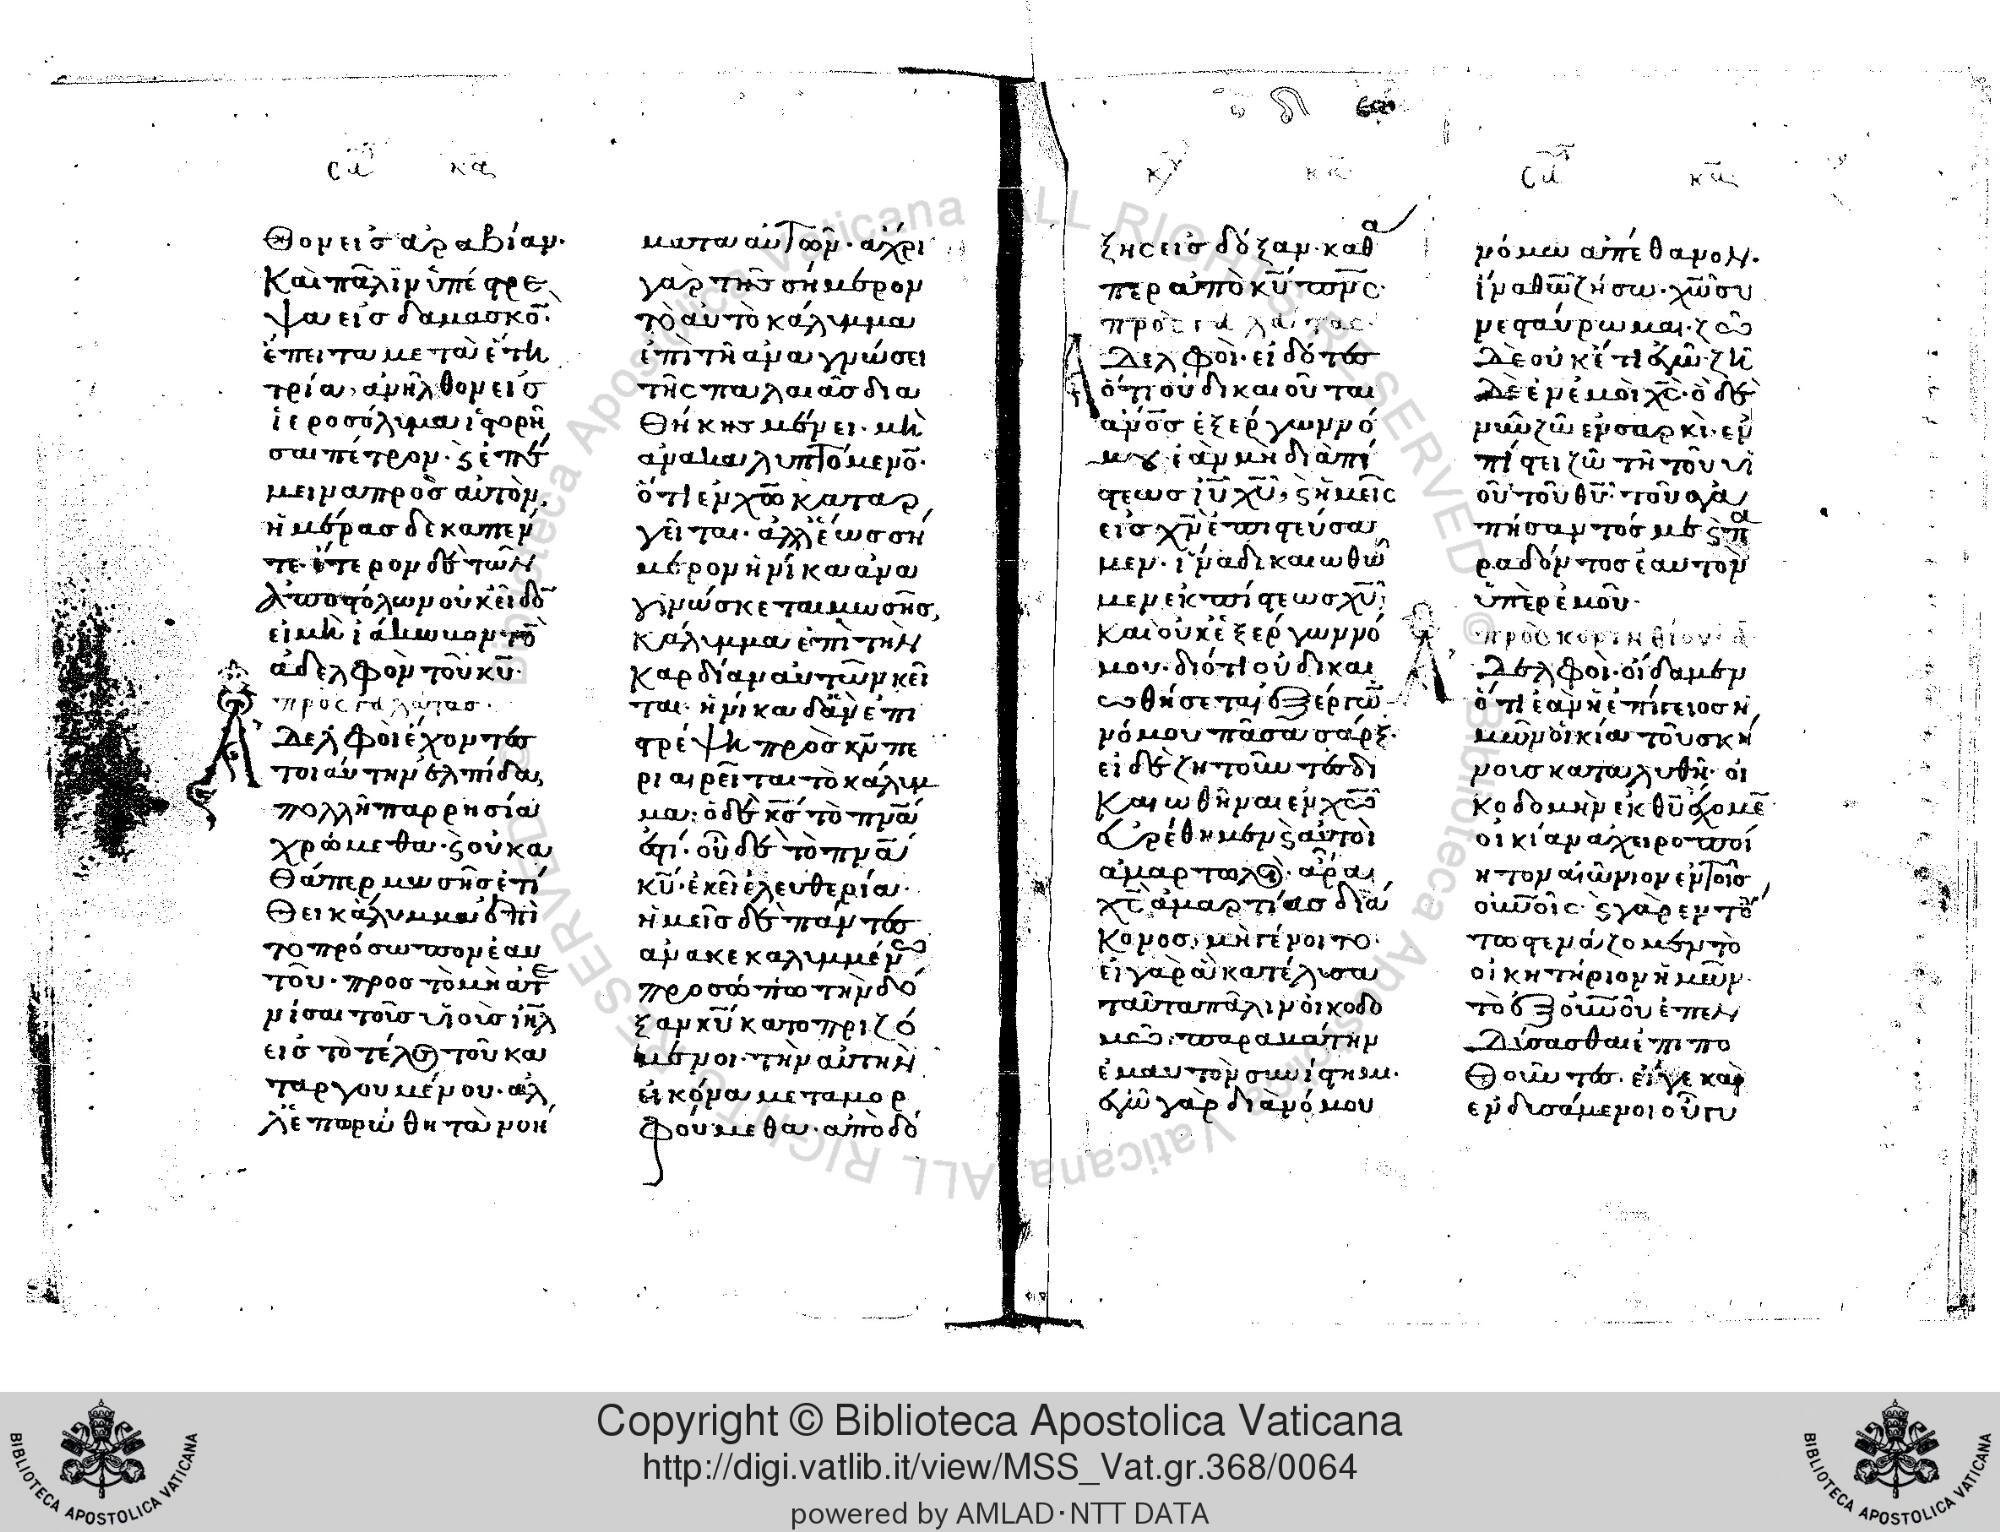 θον εἰς ἀραβίαν·
Καὶ πάλιν ὑπέστρε
ψα εἰς δαμασκο̅·
ἔπειτα μετὰ ἔτη
τρία, ἀνῆλθον εἰς
ἱεροσόλυμα ἱστορῆ
σαι πέτρον· ϛ ἐπέ
μεινα πρὸς αὐτὸν,
ἡμέρας δεκαπέν
τε· ἕτερον δὲ τῶν
ἀποστόλων οὐκ εἶδο̅
εἰ μὴ ἰάκωβον· το̅
ἀδελφὸν τοῦ κυ̅·
πρὸς γαλάτας·
Ἀδελφοὶ ἔχοντες
τοιάυτην ἐλπίδα,
πολλῆ παρρησία
χρώμεθα· ϛ οὐ κα
θάπερ μωσῆς ἐτί
θει κάλυμμα ἐπὶ
το πρόσωπον ἑαυ
τοῦ· προς τὸ μὴ ἀτε
νίσαι τοῖς υἱοὺς ιη̅λ
εἰς τὸ τέλος τοῦ κα
ταργουμένου· ἀλ
λ' ἐπωρώθη τὰ νοή
ματα αὐτῶν· ἄχρι
γὰρ τῆς σήμερον
τὸ αὐτὸ κάλυμμα
ἐπὶ τῆ ἀναγνώσει
τῆς παλαιᾶς δια
θήκης μένει· μὴ
ἀνακαλυπτόμενο̅·
ὅτι ἐν χω̅ καταρ
γεῖται· ἀλλ' ἕως σή
μερον ἡνίκα ἀνα
γινώσκεται μωσῆς,
κάλυμμα ἐπὶ τὴν
καρδίαν αὐτῶν κεῖ
ται· ἡνίκα δ' ἂν ἐπι
στρέψη πρὸς κν̅ πε
ριαιρεῖται τὸ κάλυμ
μα· ὁ δὲ κς̅ τὸ πνα̅
ἐστί· οὗ δὲ τὸ πνα̅
κυ̅· ἐκεῖ ἐλευθερία·
ἡμεῖς δὲ πάντες
ἀνακεκαλυμμένω
προσώπω τὴν δό
ξαν κυ̅ κατοπριζό
μενοι· τὴν αὐτὴν
εἰκόνα μεταμορ
φούμεθα· ἀπὸ δό
ξης εἰς δόξαν· καθα
περ ἀπὸ κυ̅ πνς̅·
πρὸς γαλάτας·
Ἀδελφοὶ· εἰδότες
ὅτι οὐ δικαιοῦται
ἄνο̅ς ἐξ ἔργων νό
μου· ἐὰν μὴ διὰ πί
στεως ιυ̅ χυ̅, ϛ ἡμεῖς
εἰς χν̅ ἐπιστεύσα
μεν· ἵνα δικαιωθῶ
μεν ἐκ πίστεως χυ̅·
Καὶ οὐκ ἐξ ἔργων νό
μου· διότι οὐ δικαι
ωθήσεται ἐξ ἔργω̅
νόμου πᾶσα σάρξ·
εἰ δὲ ζητοῦντες δι
καιωθῆναι ἐν χω̅
εὑρέθημεν ϛ αὐτοὶ
ἁμαρτωλοί· ἆραι
χς̅ ἁμαρτίας διά
κονος, μὴ γένοιτο·
εἰ γὰρ ἃ κατέλυσα
ταῦτα πάλιν οἰκοδο
μῶ· παραβάτην
ἐμαυτὸν συνίστημι·
ἐγὼ γὰρ διὰ νόμου
νόμω ἀπέθανον·
ἵνα θω̅ ζήσω· χω̅ συ
νεσταύρωμαι· ζῶ
δὲ οὐκέτι ἐγώ· ζῆ
δὲ ἐν ἐμοὶ χς̅· ὃ δὲ
νῦν ζῶ ἐν σαρκὶ· ἐν
πίστει ζῶ τῆ τοῦ υἱ
οῦ τοῦ θυ̅· τοῦ ἀγα
πήσαντός με ϛ πα
ραδόντος ἑαυτὸν
ὑπὲρ ἐμοῦ·
πρὸς κορινθίους β̅
Ἀδελφοὶ· οἴδαμεν
ὅτι ἐὰν ἡ ἐπίγειος ἡ
μῶν οἰκία τοῦ σκή
νους καταλυθῆ· οἰ
κοδομὴν ἐκ θυ̅ ἔχομε̅
οἰκίαν ἀχειροποί
ητον αἰώνιον ἐν τοῖς
οὐνοῖς· ϛ γὰρ ἐν το̅
τω στενάζομεν τὸ
οἰκητήριον ἡμῶν·
τὸ ἐξ οὐνοῦ ἐπεν
δύσασθαι ἐπιπο
θοῦντες· εἴγε καὶ
ἐνδυσάμενοι οὐ γυ
Copyright © Biblioteca Apostolica Vaticana
http://digi.vatlib.it/view/MSS_Vat.gr.368/0064
powered by AMLAD·NTT DATA